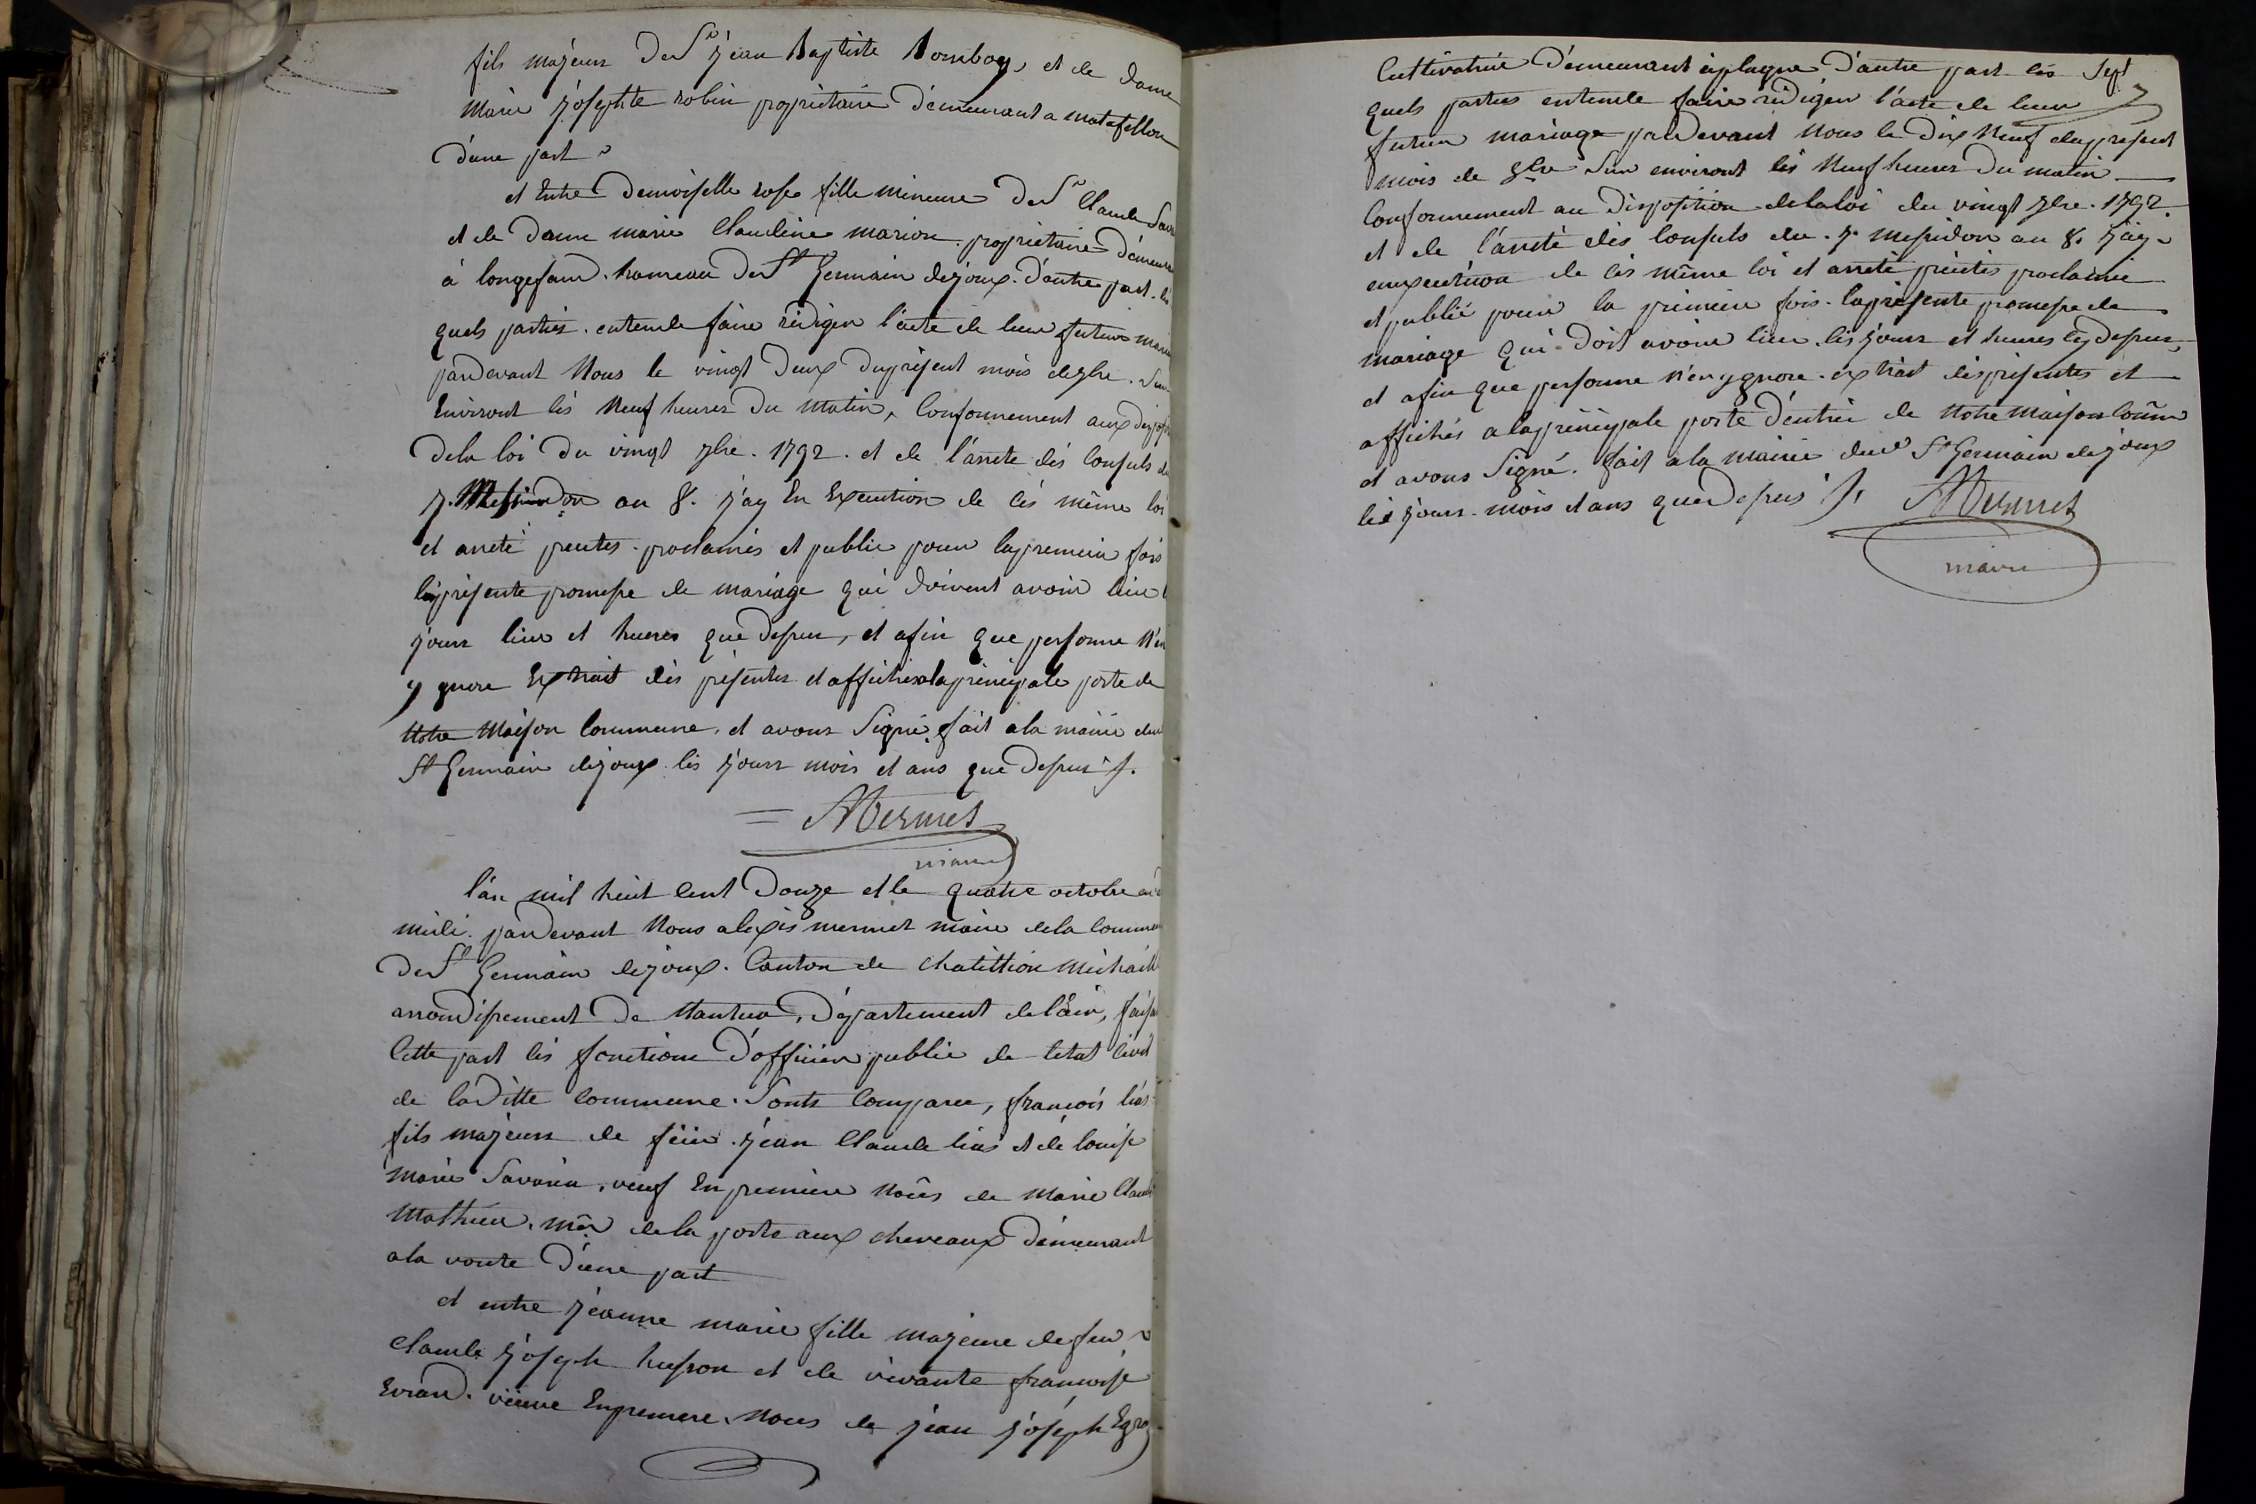 fils majeur de Sr jéan Baptiste Bomboy, et de dame
marie joséphte robin propriétaire démeurant a matafellon
d'une part
et Entre Demoiselle rose fille mineure de Sr Claude
et de Dame marie Claudine marion propriétaire démeurant
à longefand. hameau de St Germain dejoux. d'autre part. les
quels partiés. entende faire rédiger l'acte de leur future
pardevant Nous le vingt Deux du présent mois de 8bre. Sur
Environt lés Neuf heures Du Matin, Conformement aux
de la loi Du vingt 7bre. 1792. et de l'arrete dés Consuls du
7. Messidor an 8. j'ay En Execution de cés même loi
et arreté proclamés et publié pour la premiere fois
la présente promesse de mariage qui doivent avoir lieu
jours lieu et heures que dessus, et afin que personne N'en
y gnore Extrait dés présentes et affichés a la principale porte de
Notre Maison Commune, et avons Signé, fait a la mairie de
St Germain déjoux lés jours mois et ans que dessus
= AMermet
maire
l'an mil huit cent Douze et le quatre octobre
midi. pardevant Nous aléxis mermet maire de la Commune
de St Germain déjoux. Canton de chatittion Michaille
arrondissement de Nantua, Département de l'ain,
Cette part lés fonctions D'officier public de letat civil
de la Ditte commune. Sonts Comparu, francois
fils majeur de feu jéan Claude et dé louise
marie Savarin, veuf En premiere Nôces de Marie
Mathieu. de la poste aux cheveaux démeurant
a la voute D'une part
et entre jéanne marie fille majeure de feu
Claude joséph husson et de vivante francoise
Evrard. veuve En premere Nôces de jéan joséph
Cultivatrice Démeurant éplagne d'autre part lés
quels parties entende faire rédiger l'acte de leur
futur mariage pardevant Nous le Dix Neuf du present
mois de 8bre Sur environt lés Neuf heures Du matin
Conformement au Disposition de la loi du vingt 7bre. 1792.
et de l'arreté dés Consuls du. 7. messidor an 8. j'ay
en exécution de cés même loi et arreté proclamé
et publié pour la premiere fois. la présente promesse de
mariage qui doit avoir lieu lés jours et heures cy dessus,
et afin que personne n'en y gnore. extrait dés présentes et
affichés a la principale porte d'entrée de Notre Maison Comme
et avons Signé. fait a la mairie de St Germain de joux
lés jours. mois et ans que dessus AMermet
maire